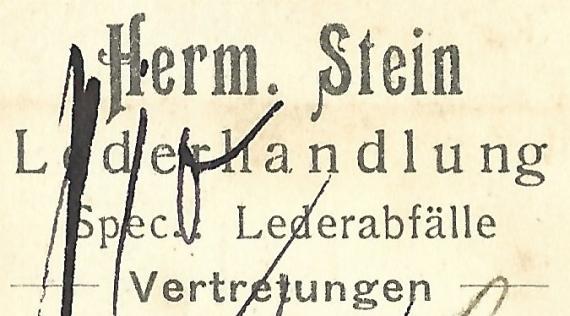 Herm. Stein
Lederhandlung
Spec.: Lederabfälle
Vertretungen